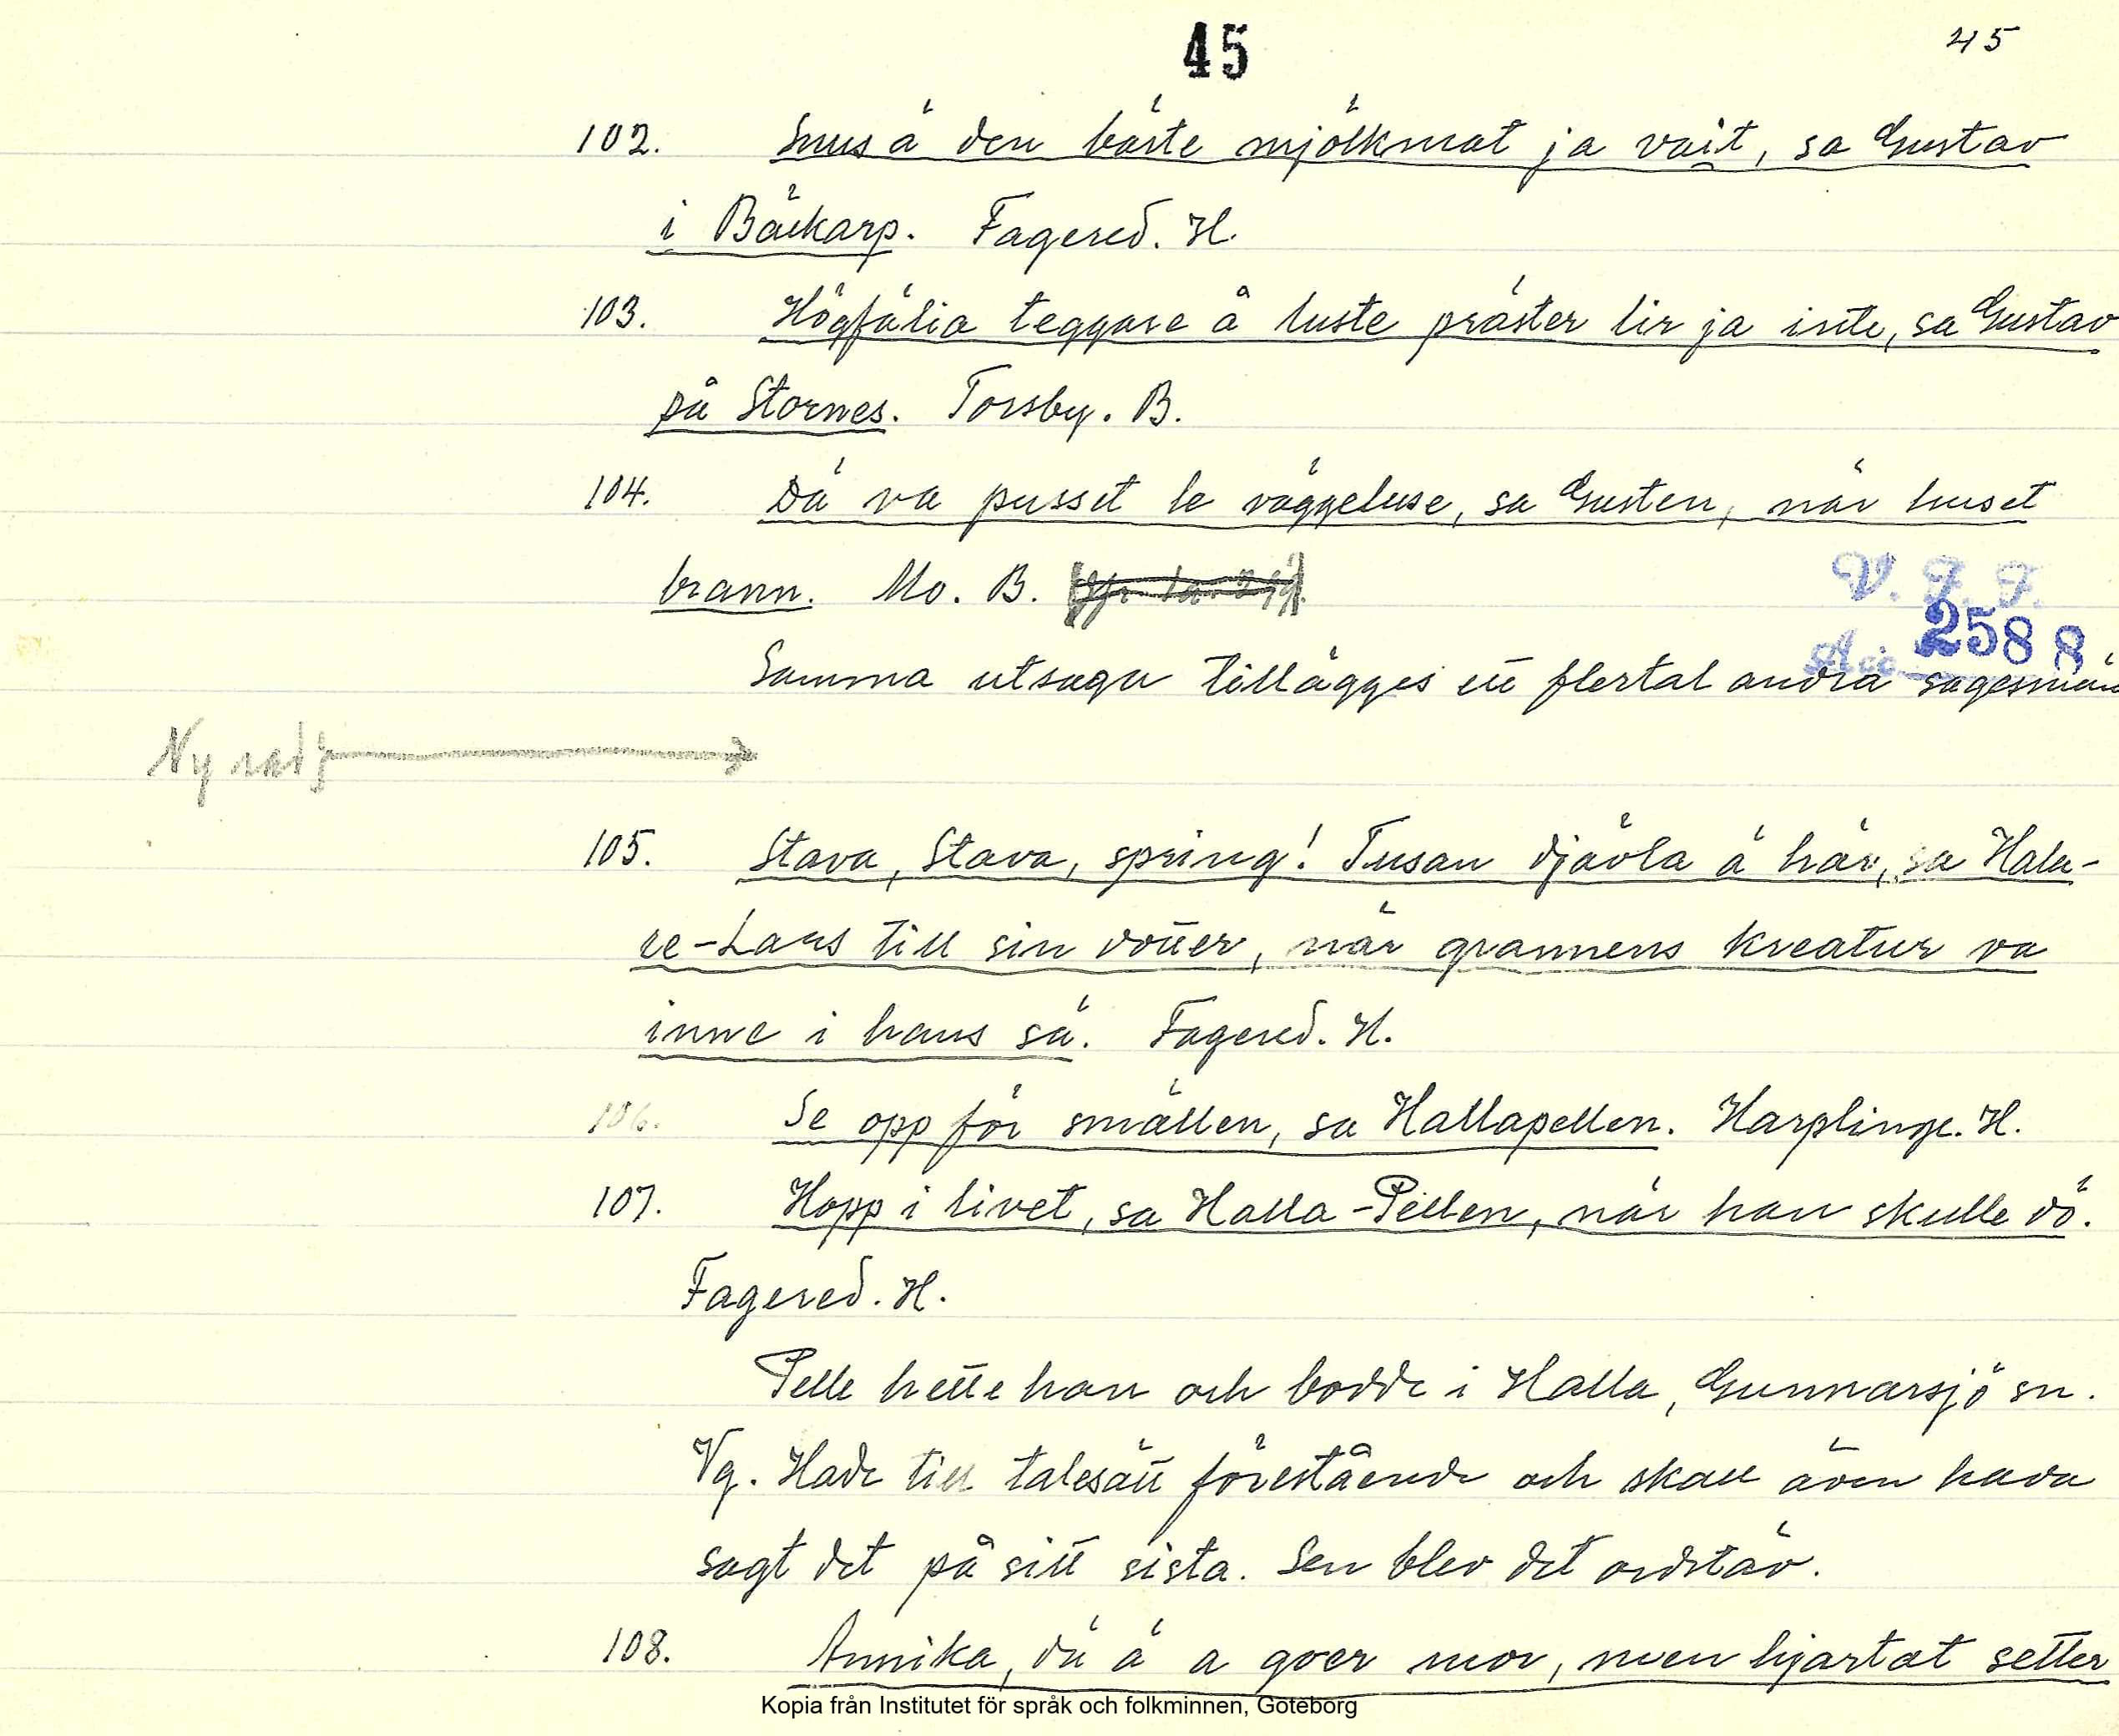 45 45
102. Snus ä den bäste mjölkmat ja vait, sa Gustav
i Bäckarp. Fagered. H.
103. Högfälia teggare å luste präster lir ja inte, sa Gustav
på Stornes. Torsby. B.
104. Dä va pusset le väggeluse, sa Gusten, när huset
brann. Mo. B.
V. F. F.
Acc. 2588
Samma utsaga tillägges ett flertal andra sagesmän
Ny rad
105. Stava, Stava, spring! Tusan djävla ä här, sa Hala-
re-Lars till sin dotter, när grannens kreatur va
inne i hans sä. Fagered. H.
106. Se opp för smällen, sa Hallapellen. Harplinge. H.
107. Hopp i livet, sa Halla-Pellen, när han skulle dö.
Fagered. H.
Pelle hette han och bodde i Halla, Gunnarsjö sn.
Vg. Hade till talesätt förestående och skall även hava
sagt det på sitt sista. Sen blev det ordstäv.
108. Annika, dä ä a goer mor, men hjartat setter
Kopia från Institutet för språk och folkminnen, Göteborg